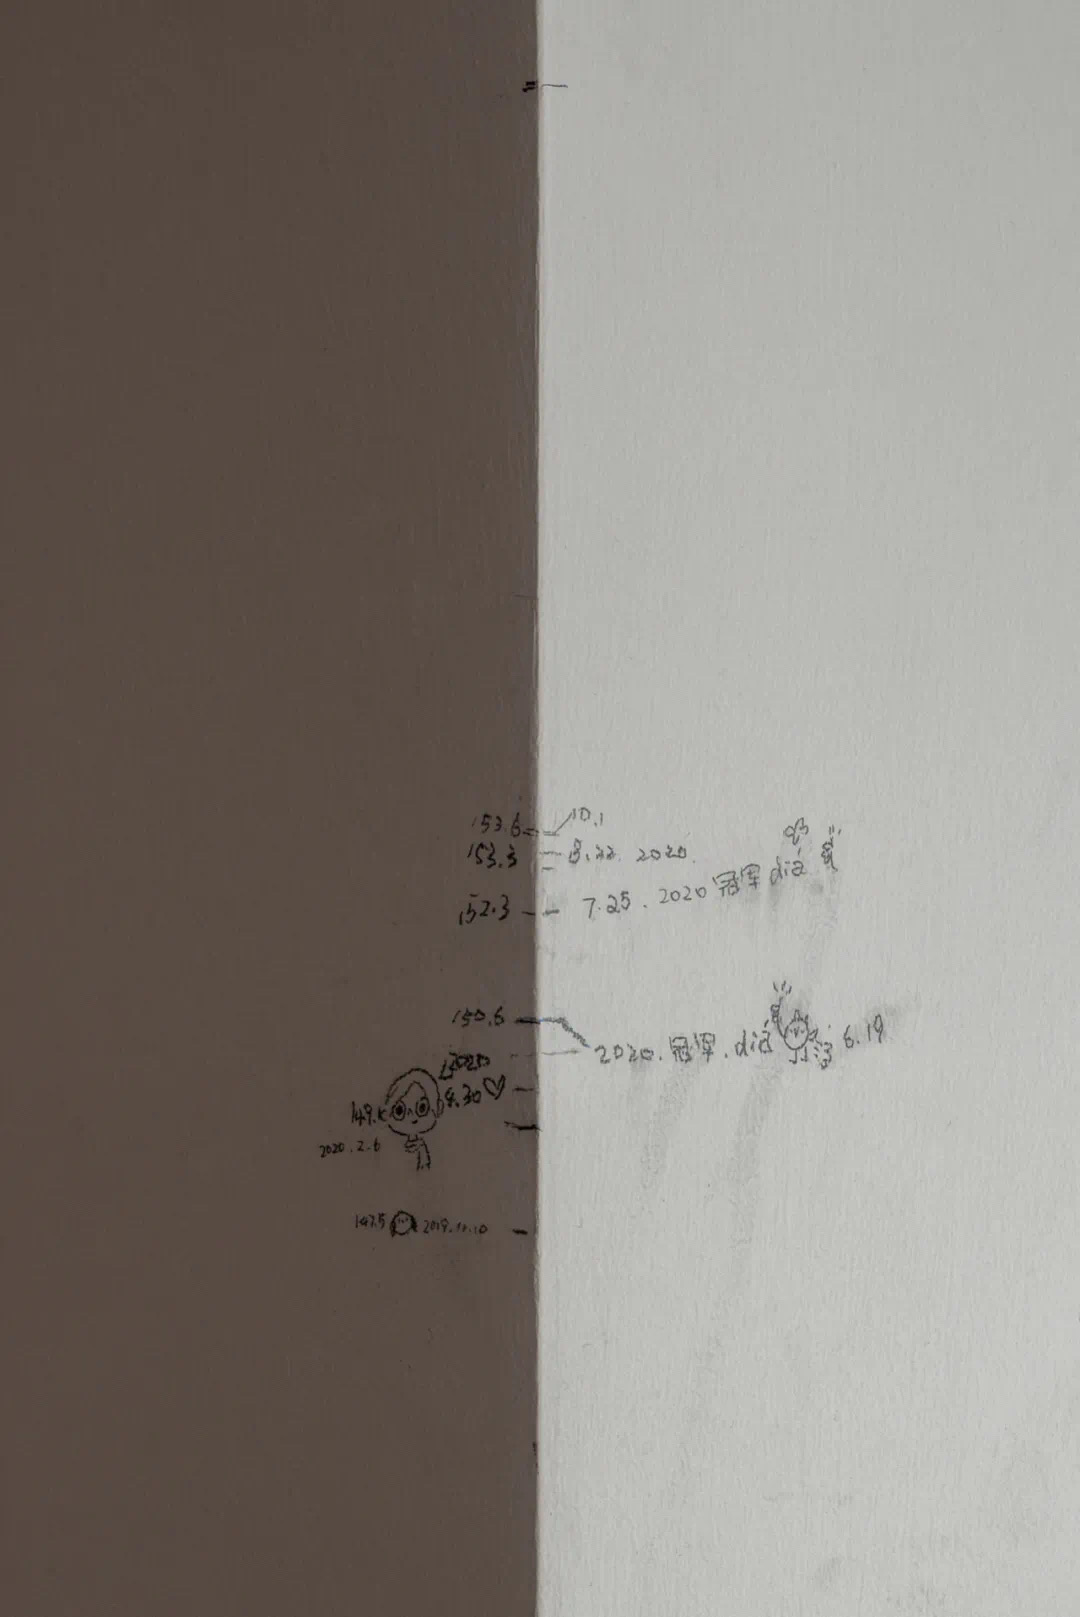 153.6 10.1
153.3 8.22. 2020.
152.3 7.25. 2020 冠军 dià
150.6
2020. 冠军. dià 6.19
2020
149.
2020.2.6
147.5 2019.11.10